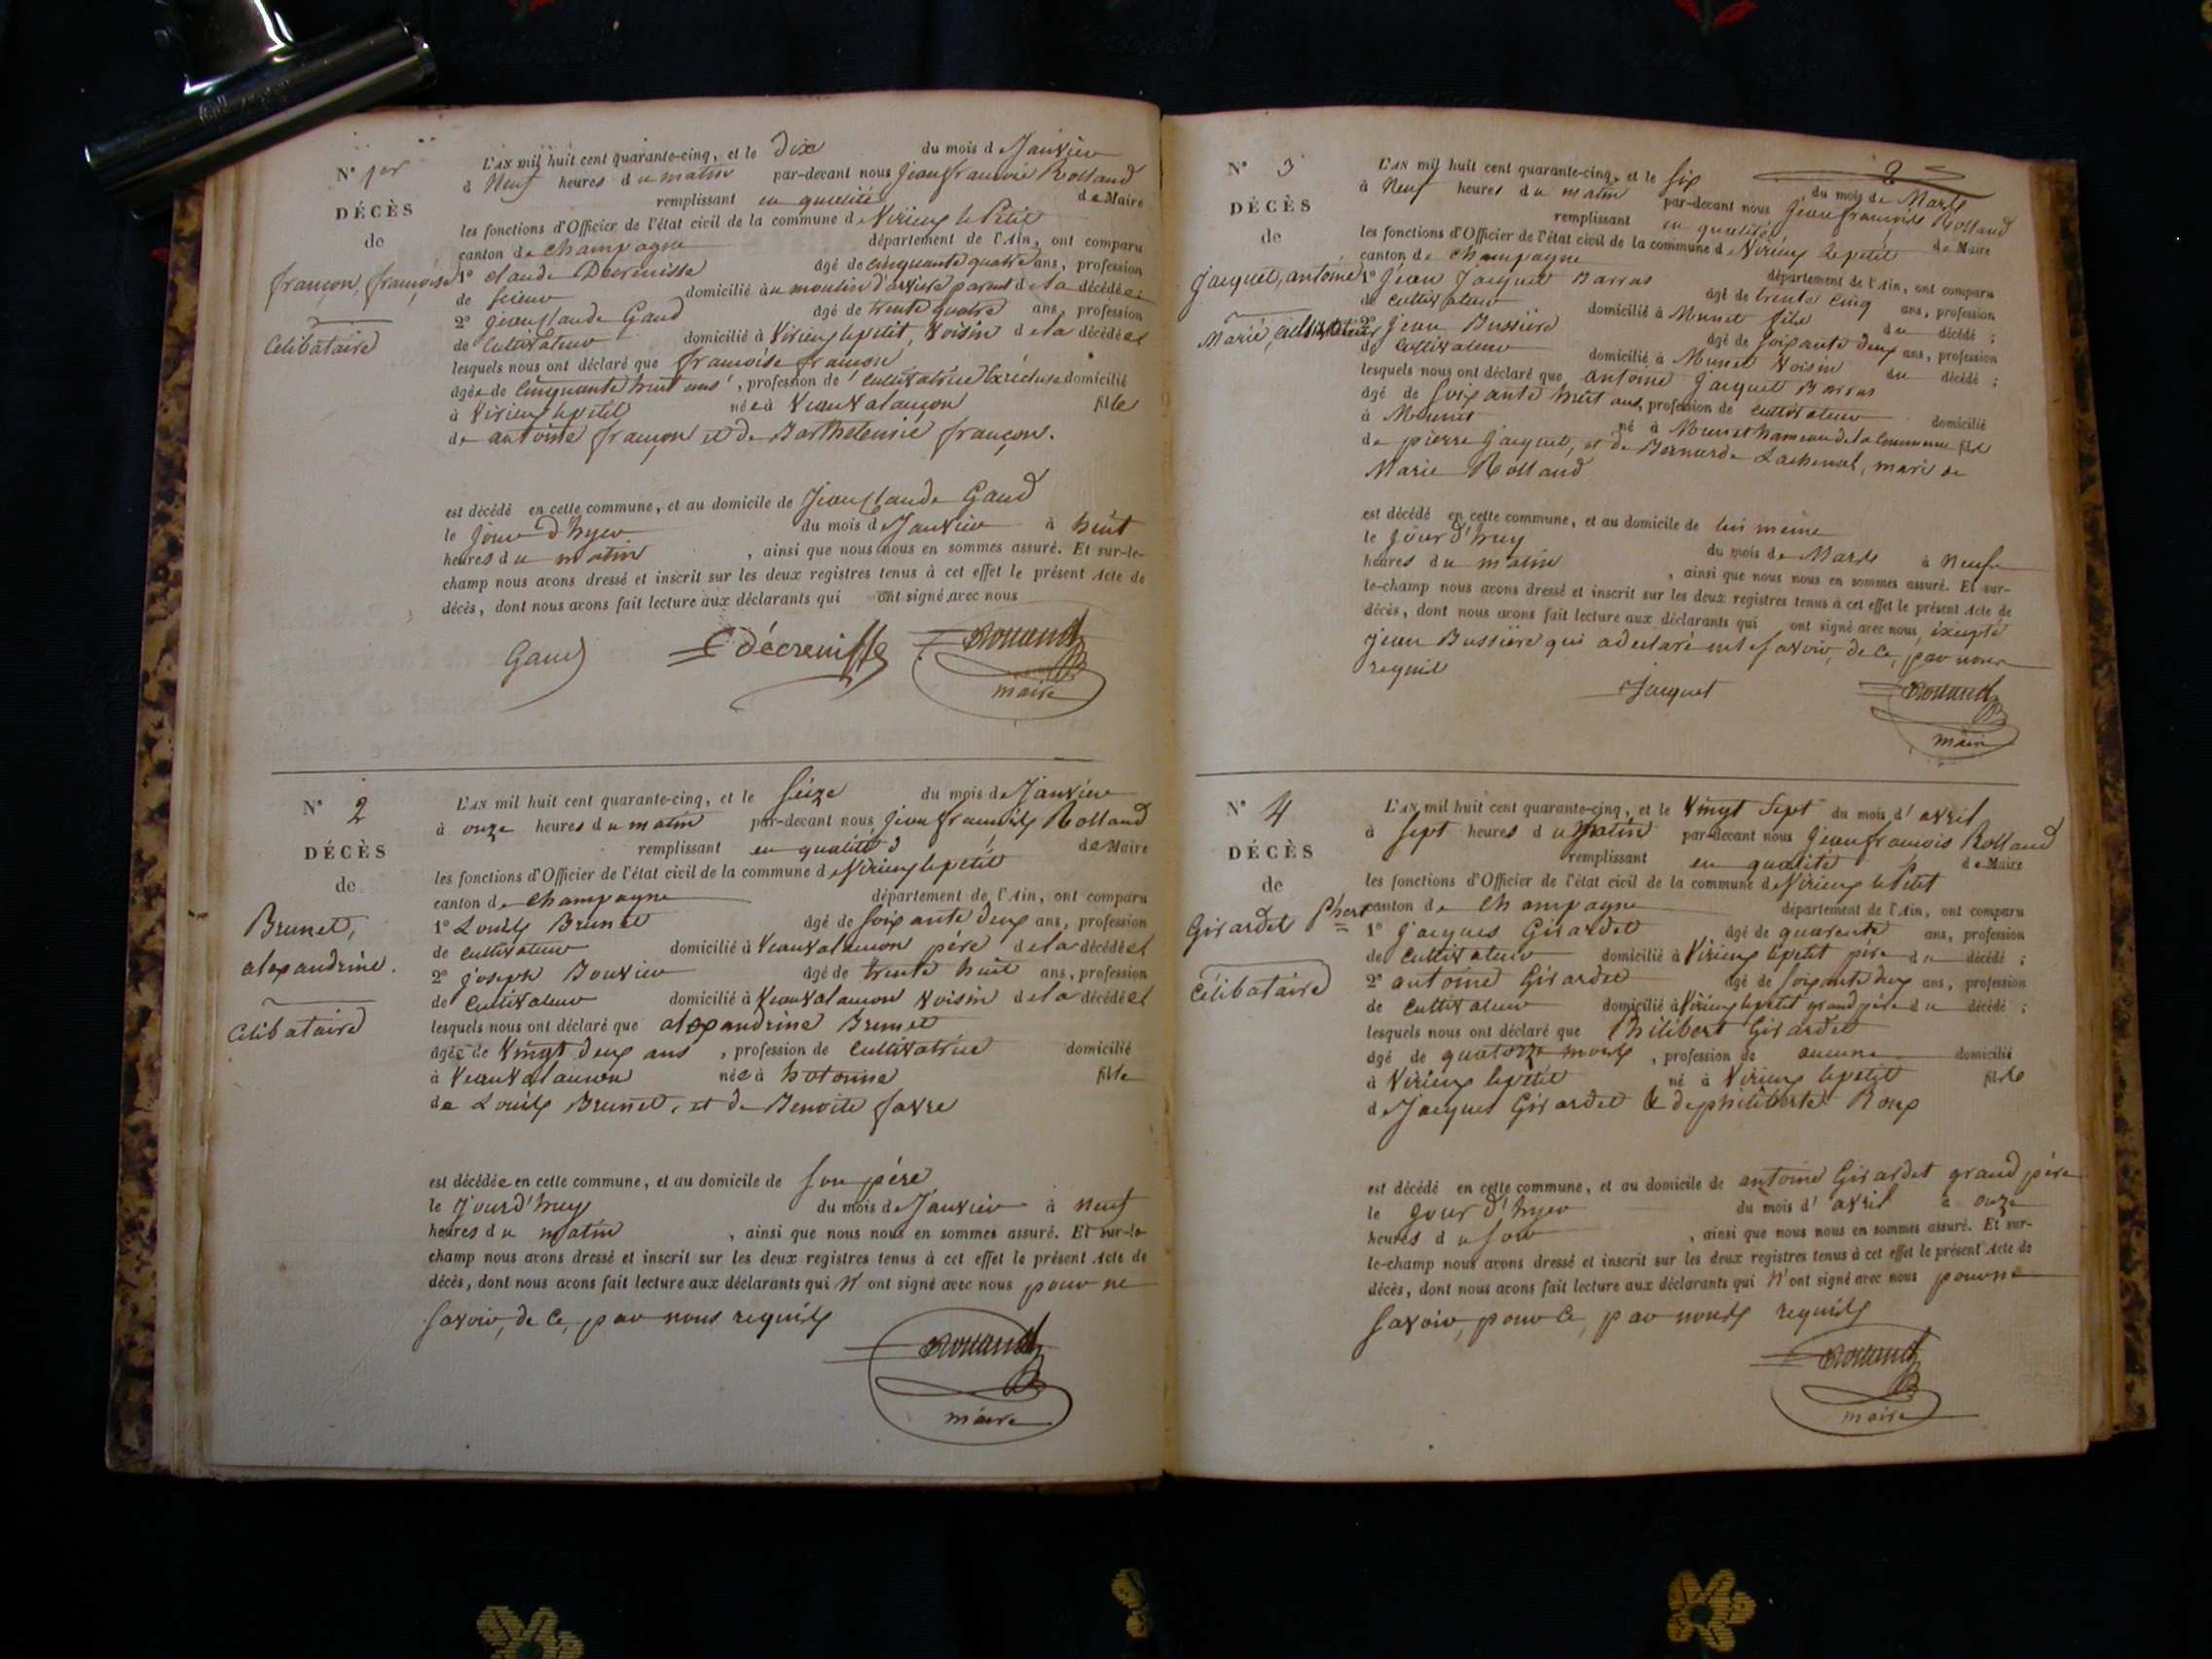 N° 1er
DÉCÈS
de
françon, françoise
Celibataire
L'AN mil huit cent quarante-cinq, et le dix du mois d Janvier
à Neuf heures du matin par-devant nous jean françois Rolland
remplissant en qualité de Maire
les fonctions d'Officier de l'état civil de la commune d Virieu le Petit
canton de Champagne département de l'Ain, ont comparu
1° Claude Decreuisse âgé de cinquante quatre ans, profession
de scieur domicilié au moulin d'arvière parent de la décédée;
2° jean Claude Gaud âgé de trente quatre ans, profession
de Cultivateur domicilié à Virieu le petit, Voisin de la décédée
lesquels nous ont déclaré que françoise françon
âgée de Cinquante huit ans, profession de Cultivatrice domicilié
à Virieu le petit née à Vaux Valançon fille
de antoine françon et de Barthelemie françon.
est décédé en cette commune, et au domicile de Jean Claude Gaud
le jour d'hyer du mois d Janvier à huit
heures du matin, ainsi que nous nous en sommes assuré. Et sur-le-
champ nous avons dressé et inscrit sur les deux registres tenus à cet effet le présent Acte de
décès, dont nous avons fait lecture aux déclarants qui ont signé avec nous
Gaud C decreuisse Rolland
maire
N° 2
DÉCÈS
de
Brunet,
alexandrine.
Celibataire
L'AN mil huit cent quarante-cinq, et le Seize du mois d Janvier
à onze heures du matin par-devant nous jean françois Rolland
remplissant en qualité de Maire
les fonctions d'Officier de l'état civil de la commune d Virieu le petit
canton de Champagne département de l'Ain, ont comparu
1° Louis Brunet âgé de soixante deux ans, profession
de Cultivateur domicilié à Vaux Valançon père de la décédée
2° joseph Bouvier âgé de trente huit ans, profession
de Cultivateur domicilié à Vaux Valançon Voisin de la décédée
lesquels nous ont déclaré que alexandrine Brunet
âgée de Vingt deux ans, profession de Cultivatrice domicilié
à Vaux Valançon née à hotonne fille
de Louis Brunet, et de Benoite favre
est décédée en cette commune, et au domicile de son père
le Jourd'huy du mois de Janvier à Neuf
heures du matin, ainsi que nous nous en sommes assuré. Et sur-le-
champ nous avons dressé et inscrit sur les deux registres tenus à cet effet le présent Acte de
décès, dont nous avons fait lecture aux déclarants qui n'ont signé avec nous pour ne
savoir, de ce, par nous requis
Rolland
maire
2
N° 3
DÉCÈS
de
Jacquet, antoine
Marié, cultivateur
L'AN mil huit cent quarante-cinq, et le six du mois de Mars
à Neuf heures du matin par-devant nous jean françois Rolland
remplissant en qualité de Maire
les fonctions d'Officier de l'état civil de la commune d Virieu le petit
canton de Champagne département de l'Ain, ont comparu
1° jean Jacquet Barras âgé de trente cinq ans, profession
de Cultivateur domicilié à Munet fils du décédé;
2° jean Bussière âgé de soixante deux ans, profession
de Cultivateur domicilié à Munet Voisin du décédé;
lesquels nous ont déclaré que antoine jacquet Barras
âgé de soixante huit ans, profession de Cultivateur domicilié
à Munet né à Munet hameau de la Commune fils
de pierre jacquet, et de Bernarde Lachenal, mari de
Marie Rolland
est décédé en cette commune, et au domicile de lui même
le jourd'huy du mois de Mars à Neuf
heures du matin, ainsi que nous nous en sommes assuré. Et sur-
le-champ nous avons dressé et inscrit sur les deux registres tenus à cet effet le présent Acte de
décès, dont nous avons fait lecture aux déclarants qui ont signé avec nous, éxcepté
jean Bussière qui a declaré ne savoir, de ce, par nous
requis
Jacquet Rolland
maire
N° 4
DÉCÈS
de
Girardet Phert
Célibataire
L'AN mil huit cent quarante-cinq, et le Vingt Sept du mois d'avril
à sept heures du matin par-devant nous jean françois Rolland
remplissant en qualité de Maire
les fonctions d'Officier de l'état civil de la commune d Virieu le Petit
canton de Champagne département de l'Ain, ont comparu
1° jacques Girardet âgé de quarente ans, profession
de Cultivateur domicilié à Virieu le petit père du décédé;
2° antoine Girardet âgé de soixante deux ans, profession
de Cultivateur domicilié à Virieu le petit grand père du décédé;
lesquels nous ont déclaré que Philibert Girardet
âgé de quatorze mois, profession de aucune domicilié
à Virieu le petit né à Virieu le petit fils
d Jacques Girardet & de philiberte Roux
est décédé en cette commune, et au domicile de antoine Girardet grand père
le jour d'hyer du mois d'avril à onze
heures du soir, ainsi que nous nous en sommes assuré. Et sur-
le-champ nous avons dressé et inscrit sur les deux registres tenus à cet effet le présent Acte de
décès, dont nous avons fait lecture aux déclarants qui n'ont signé avec nous pour ne
savoir, pour ce, par nous requis
Rolland
maire